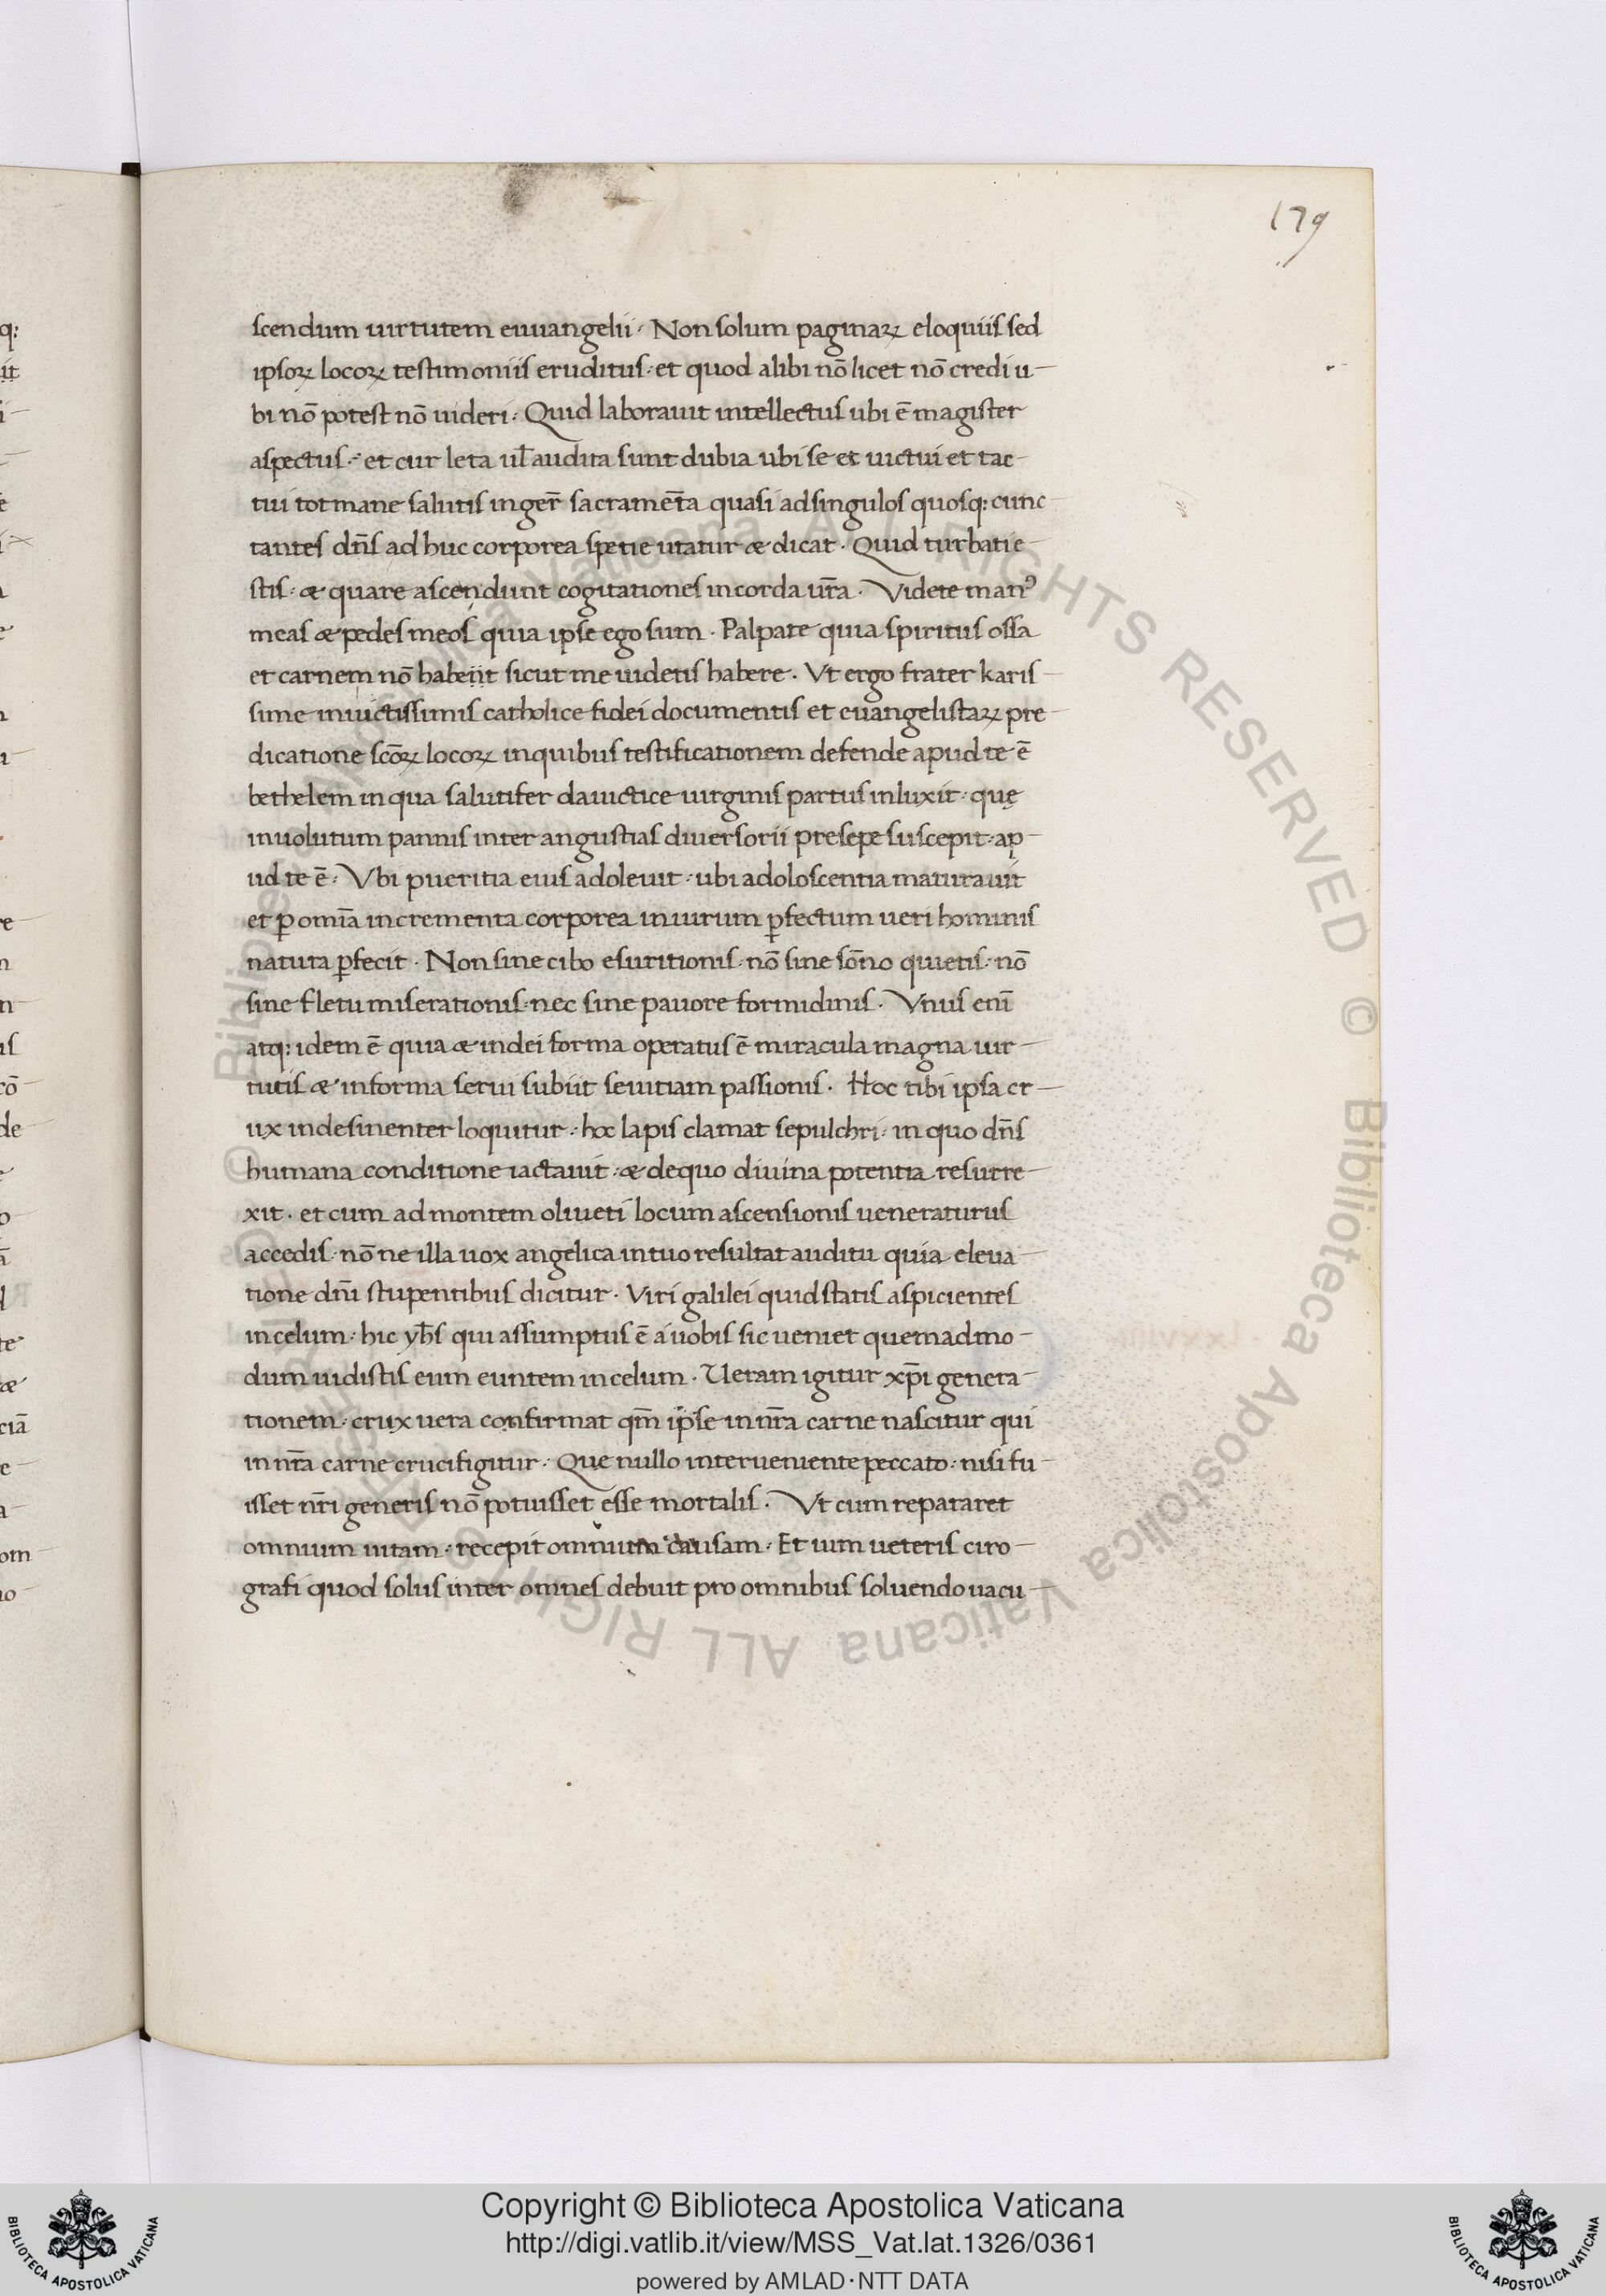 179
scendum uirtutem euuangelii· Non solum paginaꝝ eloquiis sed
ipsoꝝ locoꝝ testimoniis eruditus· et quod alibi nō licet nō credi u-
bi nō potest nō uideri· Quid laborauit intellectus ubi ē magister
aspectus· et cur leta ul̄ audita sunt dubia ubi se et uictui et tac-
tui tot mane salutis inger̄ sacramēta quasi ad singulos quosq: cunc-
tantes dn̄s ad huc corporea spetie utatur æ dicat· Quid turbati e-
stis· æ quare ascendunt cogitationes in corda ur̄a· Videte manꝰ
meas æ pedes meos quia ipse ego sum· Palpate quia spiritus ossa
et carnem nō habent sicut me uidetis habere· Vt ergo frater karis-
sime inuictissimis catholice fidei documentis et euangelistaꝝ pre-
dicatione scōꝝ locoꝝ in quibus testificationem defende apud te ē
bethelem in qua salutifer dauictice uirginis partus inluxit· quę
inuolutum pannis inter angustias diuersorii presepe suscepit· ap-
ud te ē· Vbi pueritia eius adoleuit· ubi adoloscentia maturauit
et ꝑ omīa incrementa corporea in uirum ꝑfectum ueri hominis
natura ꝑfecit· Non sine cibo esuritionis· nō sine sōno quietis· nō
sine fletu miserationis· nec sine pauore formidinis· Vnus enī
atq: idem ē quia æ in dei forma operatus ē miracula magna uir-
tutis æ in forma serui subiit seuitiam passionis· Hoc tibi ipsa cr-
ux indesinenter loquitur· hoc lapis clamat sepulchri· in quo dn̄s
humana conditione iactauit· æ de quo diuina potentia resurre-
xit· et cum ad montem oliueti locum ascensionis ueneraturus
accedis· nō ne illa uox angelica in tuo resultat auditu quia eleua-
tione dn̄i stupentibus dicitur· Viri galilei quid statis aspicientes
in celum· hic yh̄s qui assumptus ē a uobis sic ueniet quemadmo-
dum uidistis eum euntem in celum· Ueram igitur xp̄i genera-
tionem· crux uera confirmat qm̄ ipse in nr̄a carne nascitur qui
in nr̄a carne crucifigitur· Que nullo interueniente peccato· nisi fu-
isset nr̄i generis nō potuisset esse mortalis· Vt cum repararet
omnium uitam· recepit omnium causam· Et uim ueteris ciro-
grafi quod solus inter omnes debuit pro omnibus soluendo uacu-
© Biblioteca Apostolica Vaticana ALL RIGHTS RESERVED © Biblioteca Apostolica Vaticana ALL RIGHTS RESERVED
Copyright © Biblioteca Apostolica Vaticana
http://digi.vatlib.it/view/MSS_Vat.lat.1326/0361
powered by AMLAD·NTT DATA
BIBLIOTECA APOSTOLICA VATICANA
BIBLIOTECA APOSTOLICA VATICANA